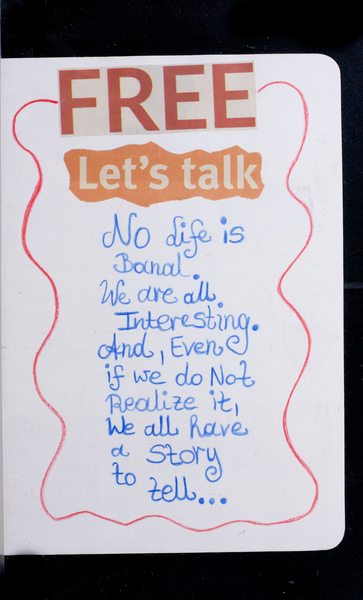 FREE
Let's talk
No life is
Banal.
We are all
Interesting.
And, Even
if we do Not
Realize it,
We all have
a Story
to tell...